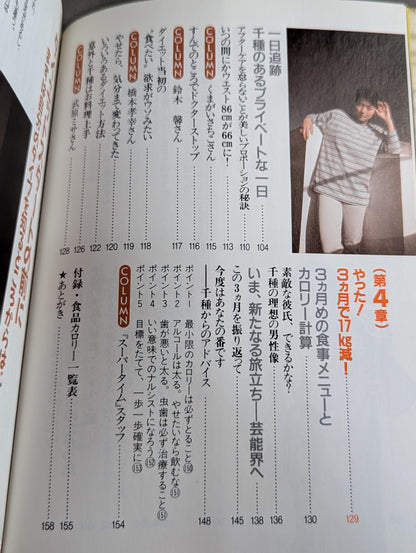 一日追跡
千種のあるプライベートな一日 104
アフターケアを怠らないことが美しいプロポーションの秘訣 110
いつの間にかウエスト86cmが66cmに! 113
COLUMN くまがいさちこさん 115
すんでのところでドクターストップ 116
COLUMN 鈴木 馨さん 117
ダイエット当初の
"食べたい"欲求がウソみたい 118
COLUMN 橋本孝幸さん 119
やせたら、気分まで変わってきた 120
いろいろあるダイエット方法 122
意外と千種はお料理上手 126
COLUMN 武原ミサさん 128
(第4章)
やった!
3ヵ月で17kg減! 129
3ヵ月めの食事メニューと
カロリー計算 130
素敵な彼氏、できるかな?
千種の理想の男性像 136
いま、新たなる旅立ち―芸能界へ 138
この3ヵ月を振り返って 145
今度はあなたの番です
―千種からのアドバイス 148
ポイント1 最小限のカロリーは必ずとること(150)
ポイント2 アルコールは太る。やせたいなら飲むな(151)
ポイント3 歯が悪いと太る。虫歯は必ず治療すること(151)
ポイント4 いい意味でのナルシストになろう(152)
ポイント5 目標をたてて、一歩一歩確実に(153)
COLUMN 『スーパータイム』スタッフ 154
付録・食品カロリー一覧表 155
★あとがき 158